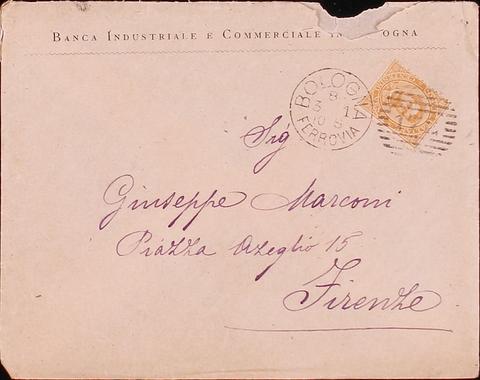 BANCA INDUSTRIALE E COMMERCIALE IN BOLOGNA
BOLOGNA
8
3 1
10 S
FERROVIA
Sig
Giuseppe Marconi
Piazza Azeglio 15
Firenze